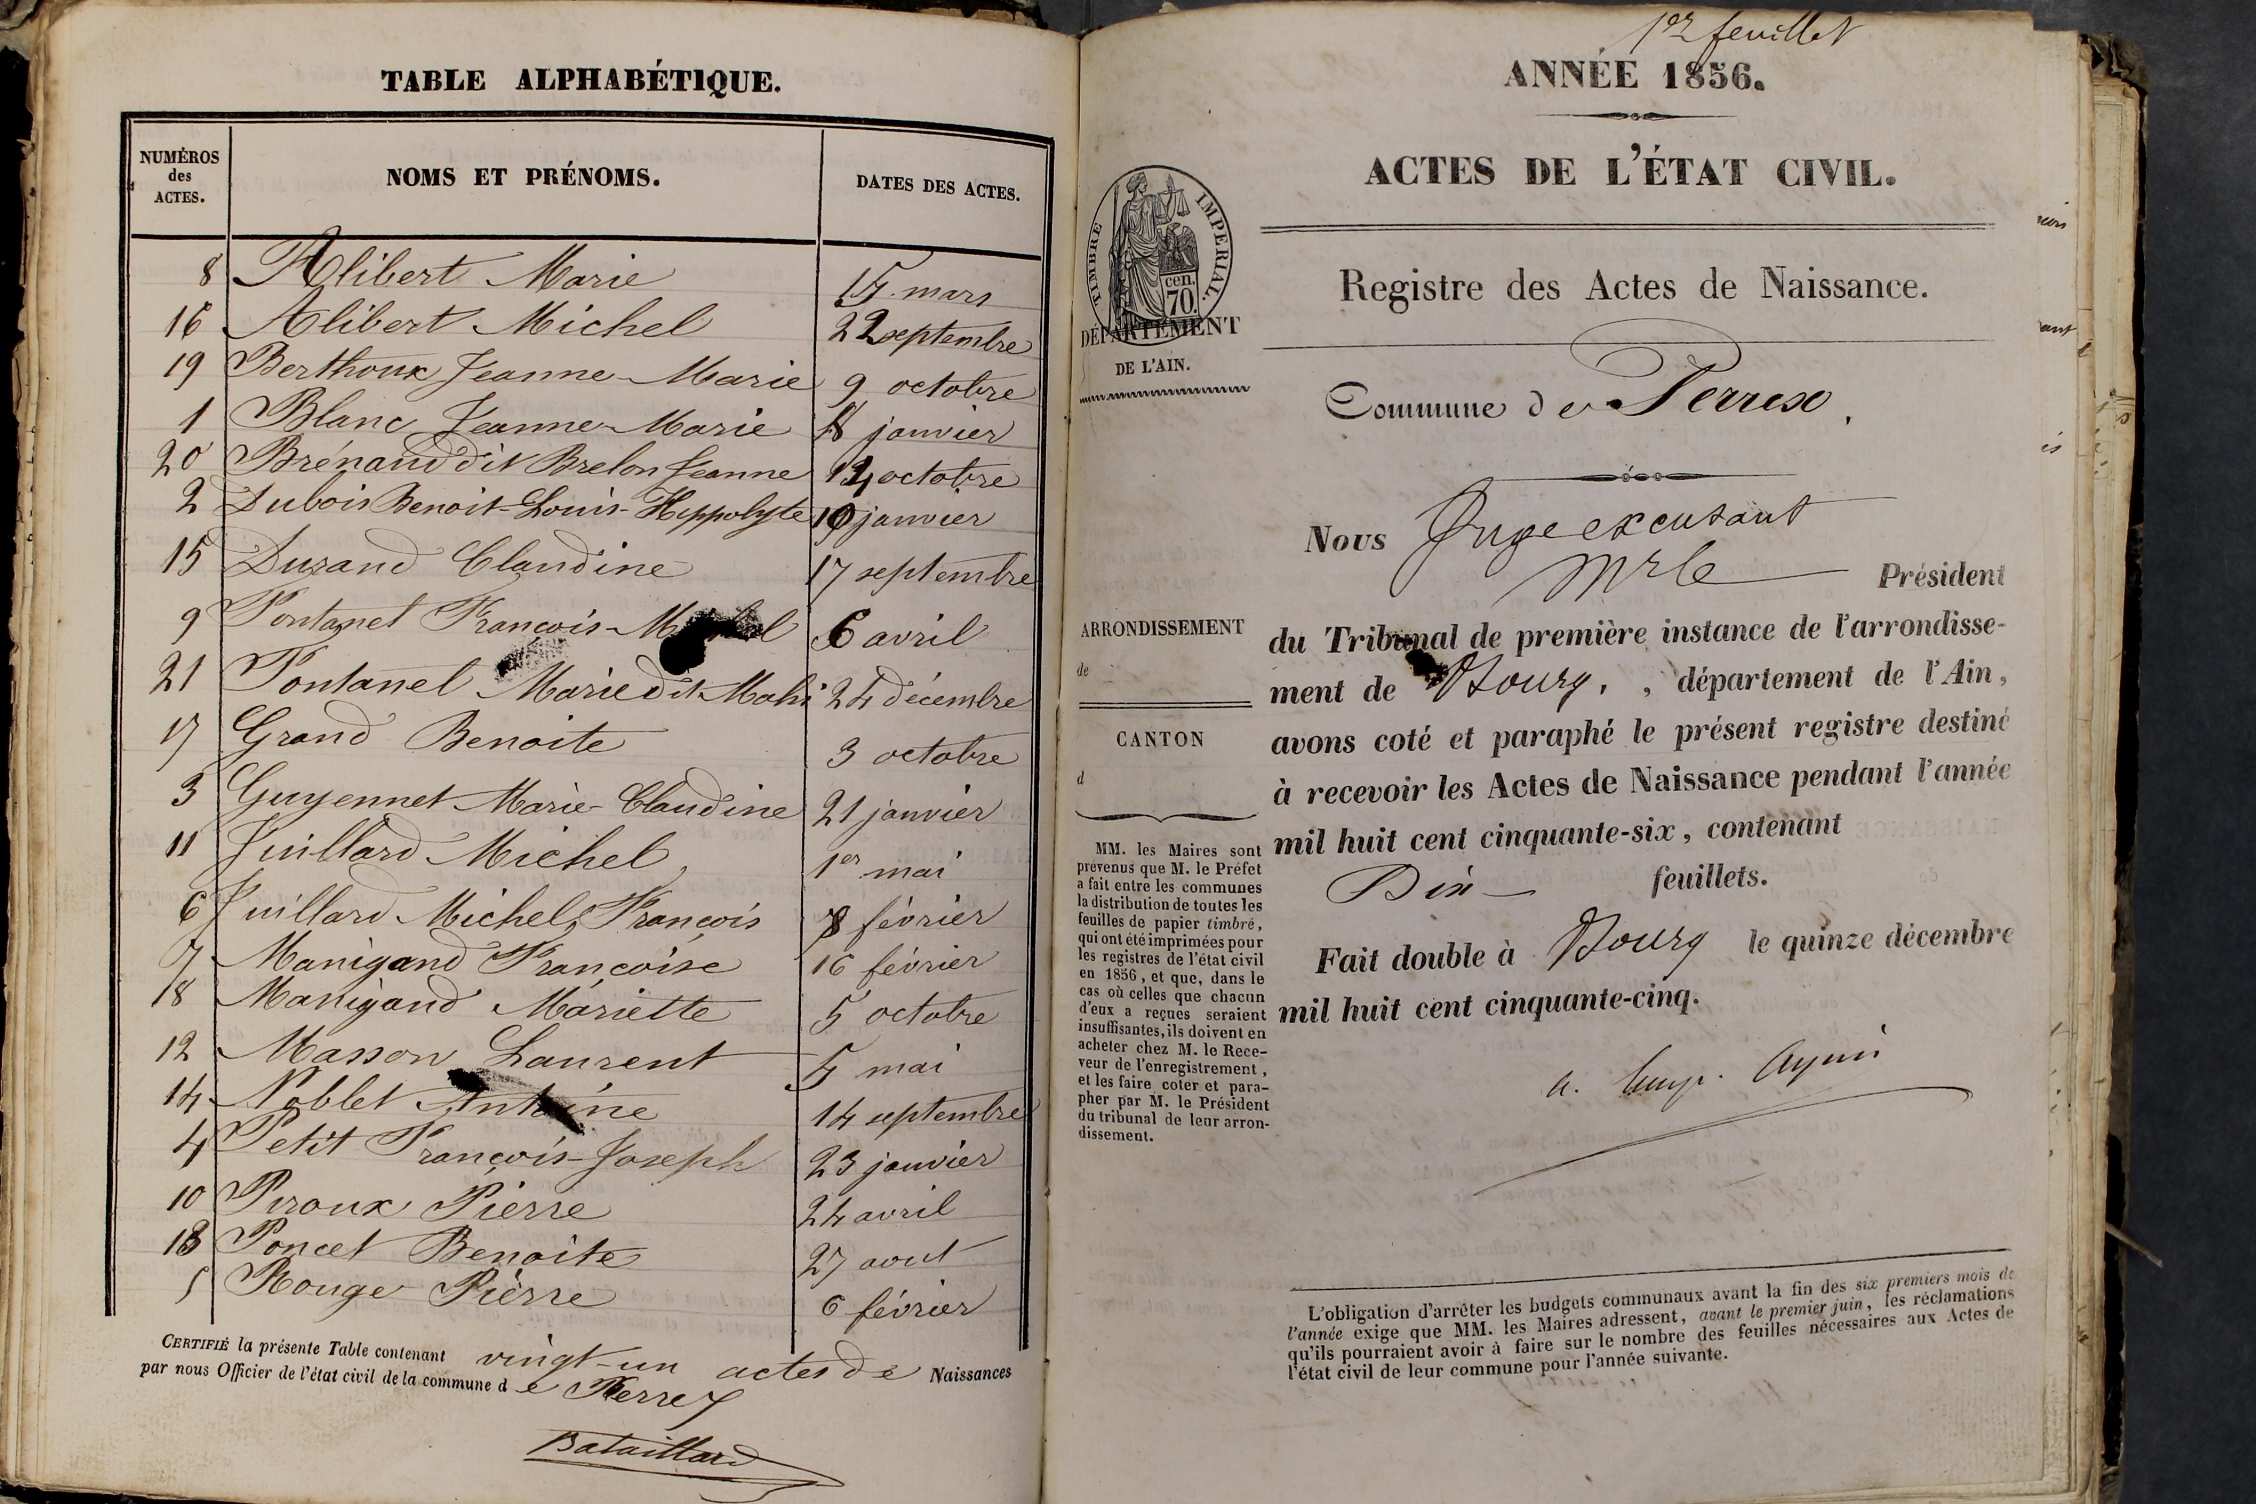 TABLE ALPHABÉTIQUE.
NUMÉROS des ACTES.
NOMS ET PRÉNOMS.
DATES DES ACTES.
8 Alibert Marie 15 mars
16 Alibert Michel 22 septembre
19 Berthoux Jeanne-Marie 9 octobre
1 Blanc Jeanne-Marie 8 janvier
20 Brénaud dit Brelon Jeanne octobre
2 Dubois Benoit-Louis-Hippolyte janvier
15 Durand Claudine 17 septembre
9 Fontanel François- 6 avril
21 Fontanel Marie dit Mahi 24 décembre
17 Grand Benoite 3 octobre
3 Guyennet Marie-Claudine 21 janvier
11 Juillard Michel 1er mai
6 Juillard Michel, François 8 février
7 Manigand Françoise 16 février
18 Manigand Mariette 5 octobre
12 Masson Laurent 5 mai
14 Noblet Antoine 14 septembre
4 Petit François-Joseph 23 janvier
10 Piroux Pierre 24 avril
13 Poncet Benoite 27 aout
5 Rouge Pierre 6 février
CERTIFIÉ la présente Table contenant vingt-un actes de Naissances
par nous Officier de l'état civil de la commune d e Perrex
Bataillard
1er feuillet
ANNÉE 1856.
ACTES DE L'ÉTAT CIVIL.
TIMBRE IMPERIAL.
cen.
70.
DÉPARTEMENT
DE L'AIN.
Registre des Actes de Naissance.
Commune de Perrex.
Nous Juge excusant
Mr le Président
du Tribunal de première instance de l'arrondisse-
ment de Bourg, , département de l'Ain,
avons coté et paraphé le présent registre destiné
à recevoir les Actes de Naissance pendant l'année
mil huit cent cinquante-six, contenant
Dix feuillets.
Fait double à Bourg le quinze décembre
mil huit cent cinquante-cinq.
ARRONDISSEMENT
de
CANTON
d
MM. les Maires sont
prévenus que M. le Préfet
a fait entre les communes
la distribution de toutes les
feuilles de papier timbré,
qui ont été imprimées pour
les registres de l'état civil
en 1856, et que, dans le
cas où celles que chacun
d'eux a reçues seraient
insuffisantes, ils doivent en
acheter chez M. le Rece-
veur de l'enregistrement,
et les faire coter et para-
pher par M. le Président
du tribunal de leur arron-
dissement.
L'obligation d'arrêter les budgets communaux avant la fin des six premiers mois de
l'année exige que MM. les Maires adressent, avant le premier juin, les réclamations
qu'ils pourraient avoir à faire sur le nombre des feuilles nécessaires aux Actes de
l'état civil de leur commune pour l'année suivante.